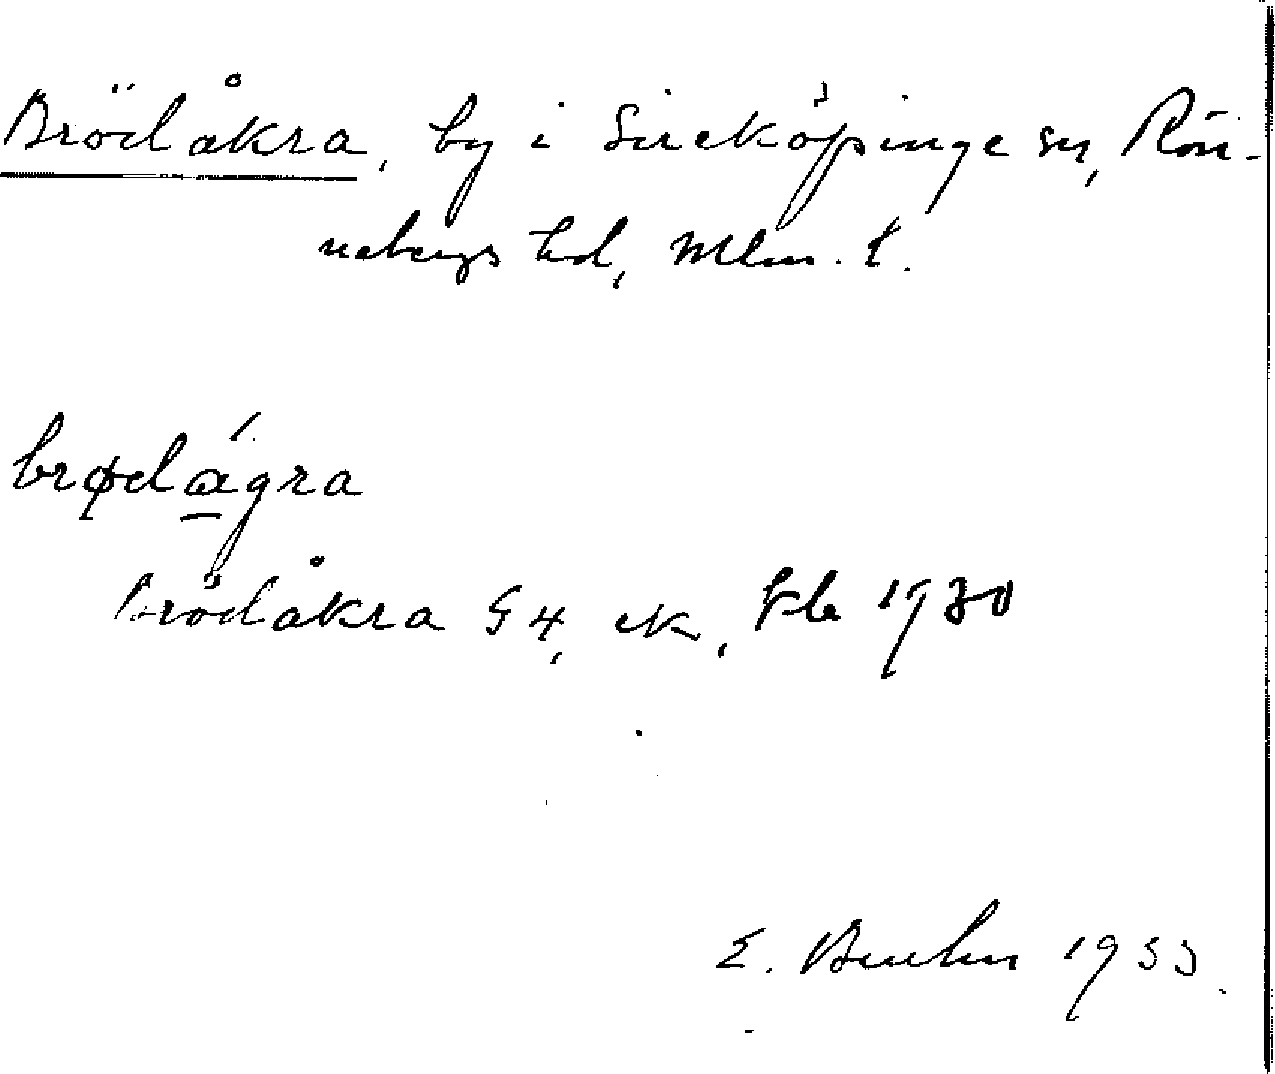 Brödåkra, by i Sireköpinge sn, Rön-
nebergs hd, Mlm. l.
brødágra
Brödåkra G4, ek, Jb 1930
E. Bruhn 1933